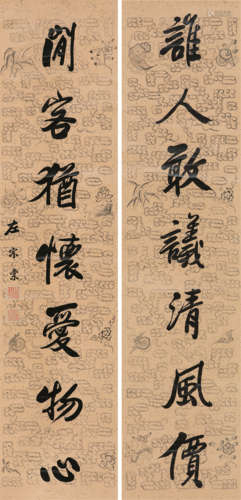 誰人敢議清風價
閒客猶懷愛物心
左宗棠